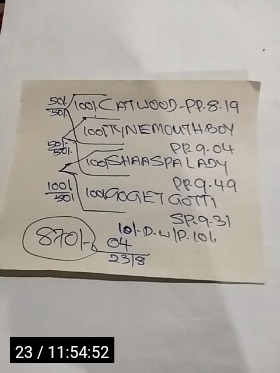 50/- 100/. CATWOOD-PP.8.19
50/.
100TYNEMOUTHBOY
50/- PP.9-04
50/-
100SHAASPALADY
100/- PP.9-49
50/- 100GOGETGOTTI
SP.9-31
870/- 10/-D.W/P.10/-
04
23/8
23 / 11:54:52